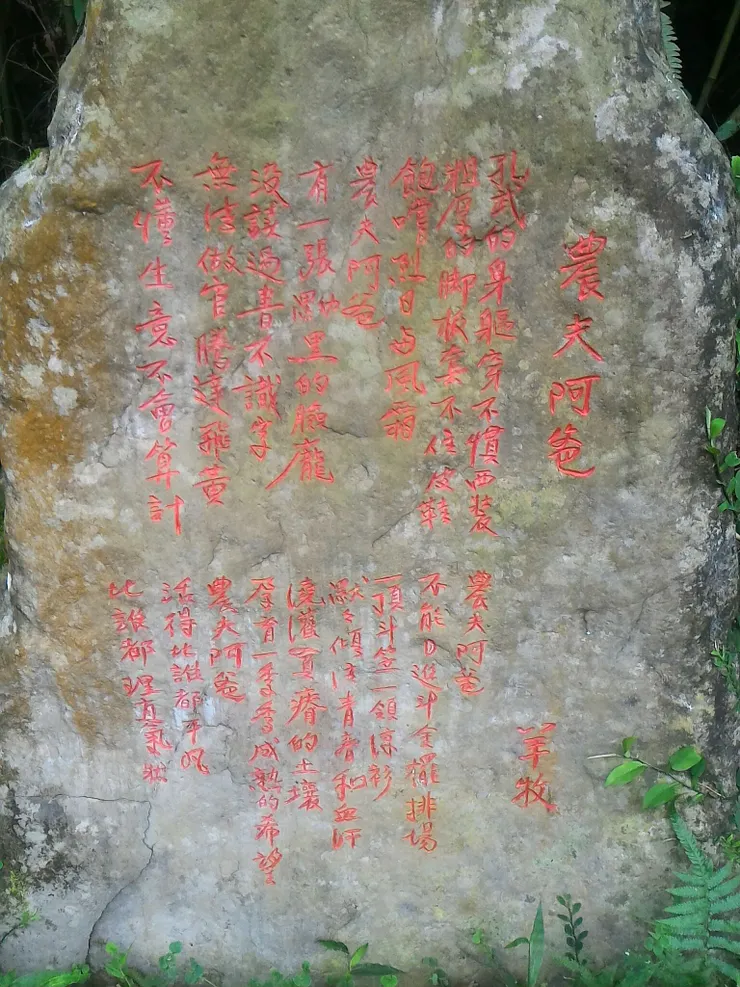 農夫阿爸
孔武的身軀穿不慣西裝
粗厚的脚板塞不住皮鞋
飽嚐烈日與風霜
農夫阿爸
有一張黝黑的臉龐
沒讀過書不識字
無法做官騰達飛黃
不懂生意不會算計
農夫阿爸
不能日進斗金擺排場
一頂斗笠一領涼衫
默々傾注青春和血汗
澆灌貧瘠的土壤
孕育一季季成熟的希望
農夫阿爸
活得比誰都平凡
比誰都理直氣壯
羊牧